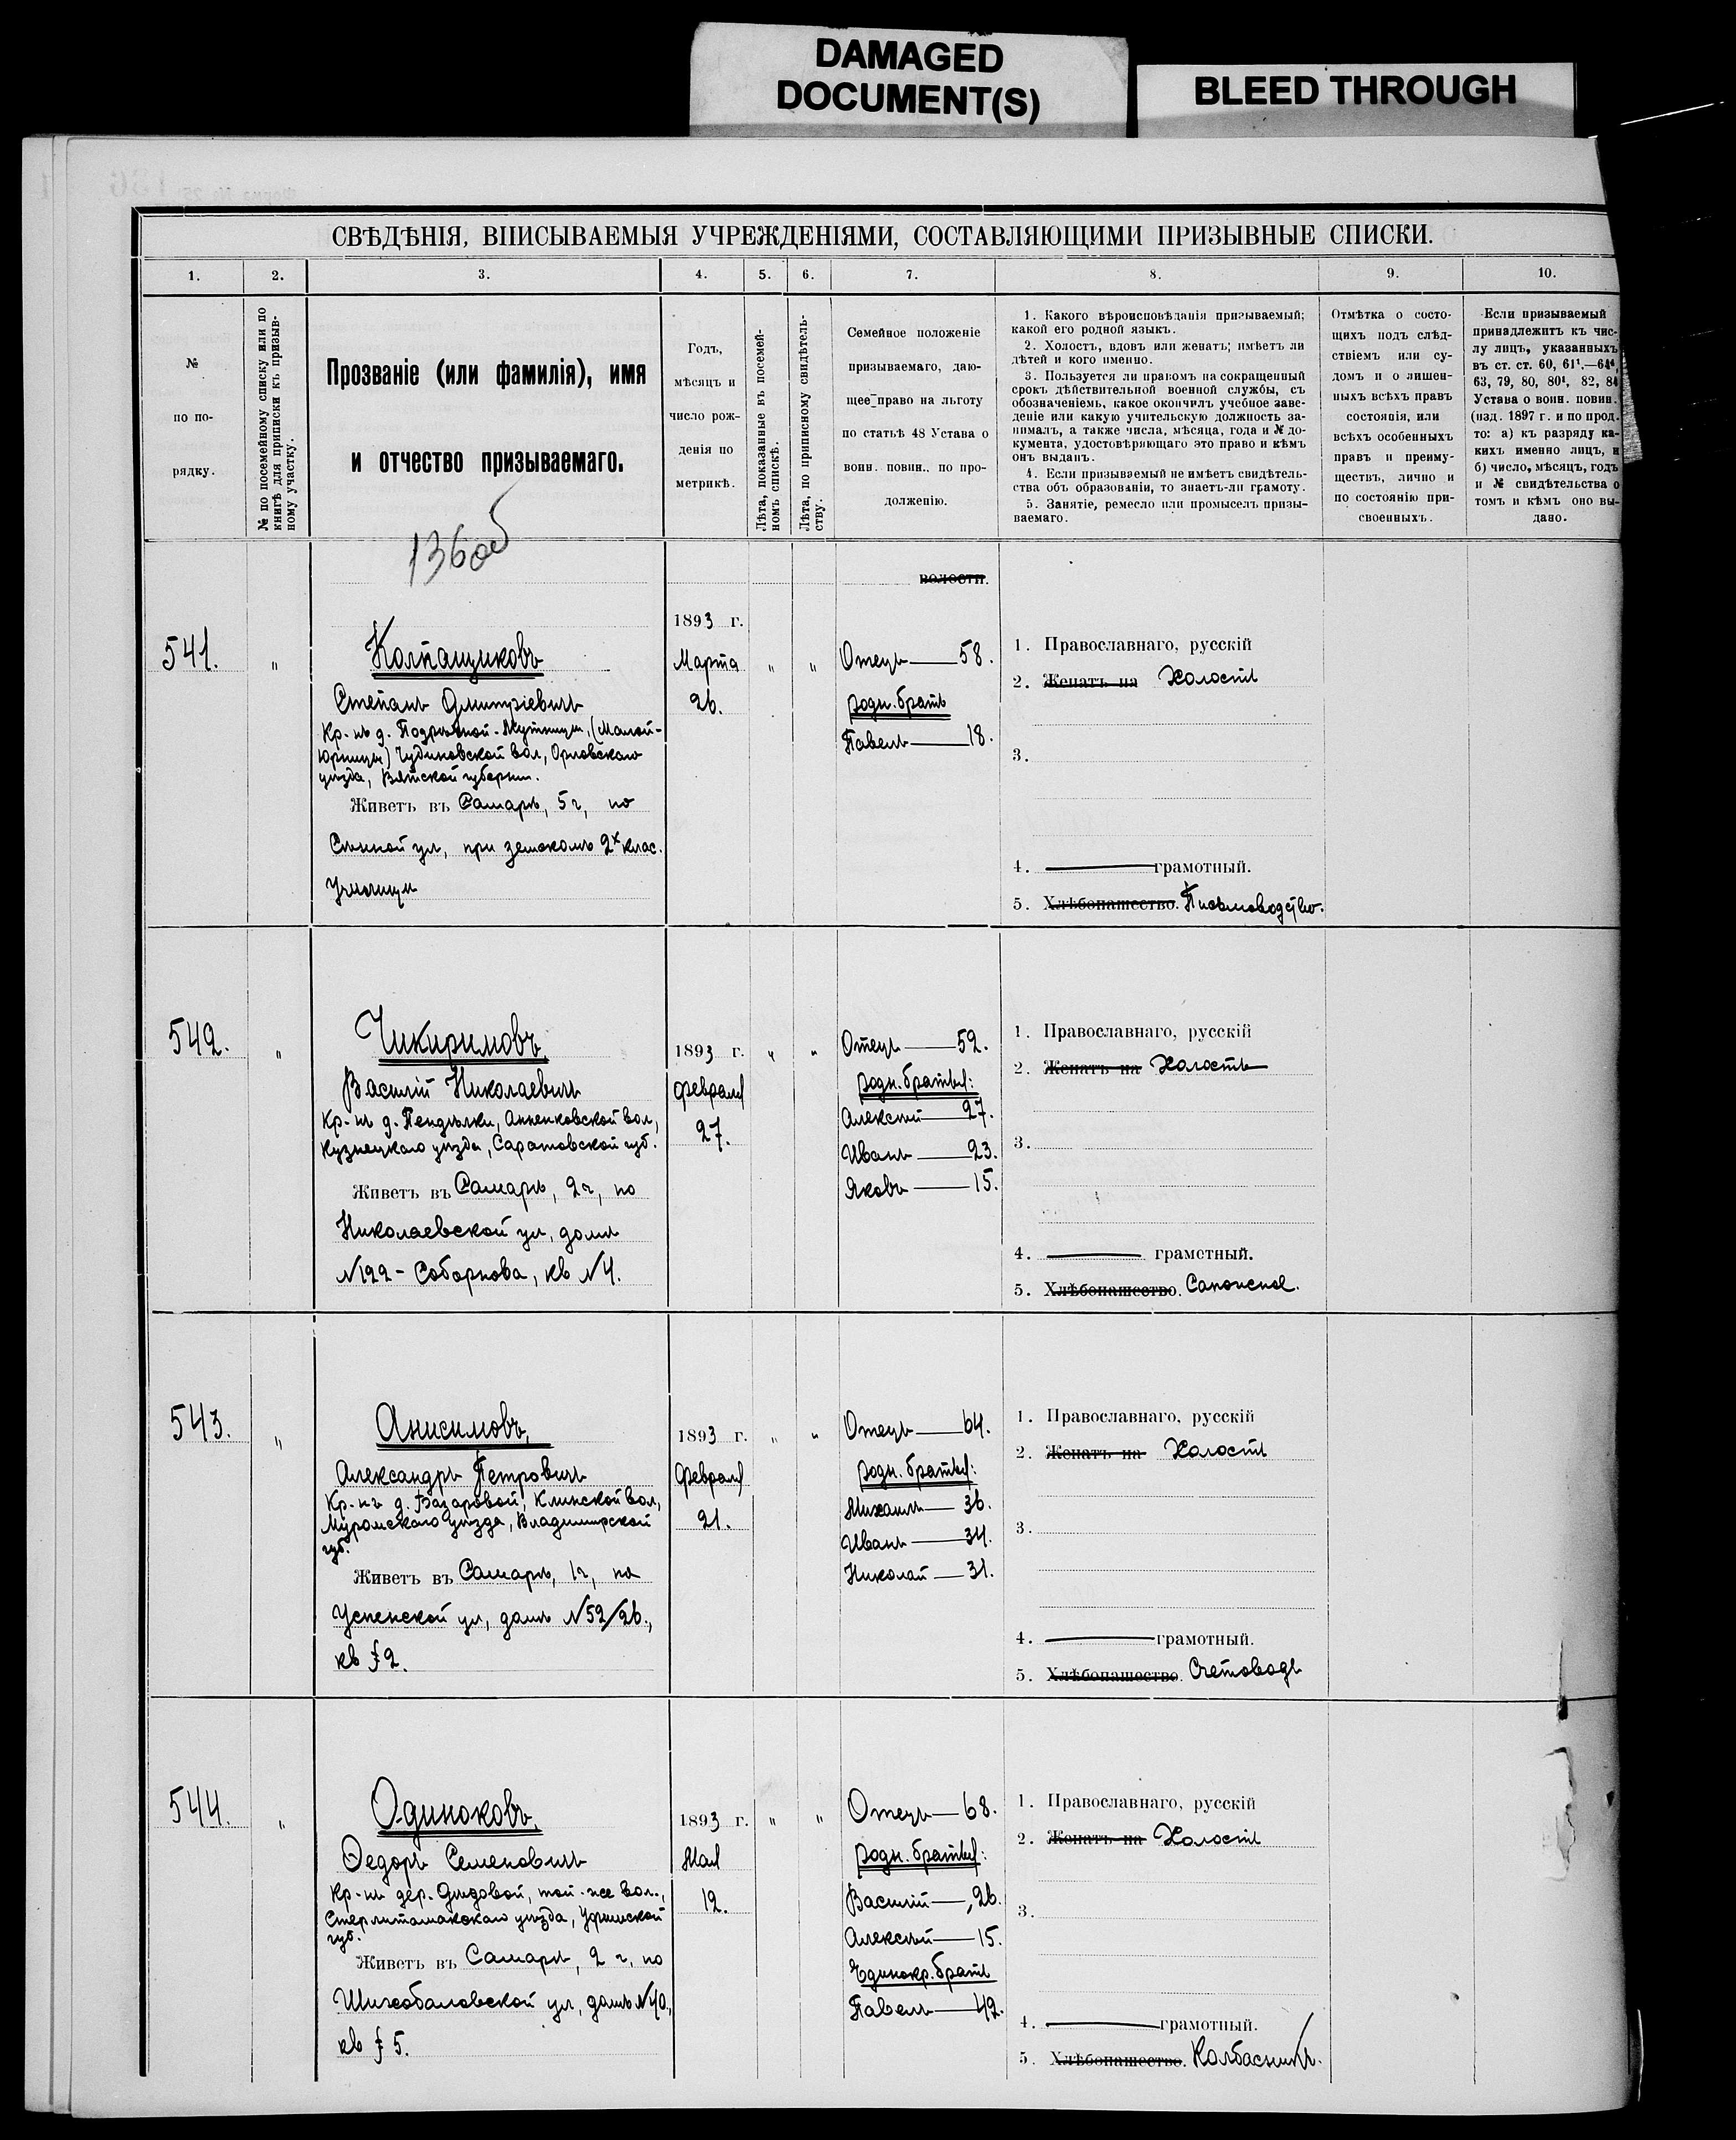 DAMAGED
DOCUMENT(S)
BLEED THROUGH
СВѢДѢНІЯ, ВПИСЫВАЕМЫЯ УЧРЕЖДЕНІЯМИ, СОСТАВЛЯЮЩИМИ ПРИЗЫВНЫЕ СПИСКИ.
1.
2.
3.
4.
5.
6.
7.
8.
9.
10.
№
по по-
рядку.
№ по посемейному списку или по
книгѣ для приписки къ призыв-
ному участку.
Прозваніе (или фамилія), имя
и отчество призываемаго.
Годъ,
мѣсяцъ и
число рож-
денія по
метрикѣ.
Лѣта, показанные въ посемей-
номъ спискѣ.
Лѣта, по приписному свидѣтель-
ству.
Семейное положеніе
призываемаго, даю-
щее право на льготу
по статьѣ 48 Устава о
воин. повин., по про-
долженію.
1. Какого вѣроисповѣданія призываемый;
какой его родной языкъ.
2. Холостъ, вдовъ или женатъ; имѣетъ ли
дѣтей и кого именно.
3. Пользуется ли правомъ на сокращенный
срокъ дѣйствительной военной службы, съ
обозначеніемъ, какое окончилъ учебное заве-
деніе или какую учительскую должность за-
нималъ, а также числа, мѣсяца, года и № до-
кумента, удостовѣряющаго это право и кѣмъ
онъ выданъ.
4. Если призываемый не имѣетъ свидѣтель-
ства объ образованіи, то знаетъ-ли грамоту.
5. Занятіе, ремесло или промыселъ призы-
ваемаго.
Отмѣтка о состо-
щихъ подъ слѣд-
ствіемъ или су-
домъ и о лишен-
ныхъ всѣхъ правъ
состоянія, или
всѣхъ особенныхъ
правъ и преиму-
ществъ, лично и
по состоянію при-
своенныхъ.
Если призываемый
принадлежитъ къ чис-
лу лицъ, указанныхъ
въ ст. ст. 60, 61¹.—64⁴,
63, 79, 80, 80¹, 82, 84
Устава о воин. повин.
(изд. 1897 г. и по прод.
то: а) къ разряду ка-
кихъ именно лицъ, и
б) число, мѣсяцъ, годъ
и № свидѣтельства о
томъ и кѣмъ оно вы-
дано.
136об
волости.
541.
"
Колпащиковъ
Степанъ Дмитріевичъ
Кр-нъ д. (Малой-
Юрницы) Чудиновской вол, Орловскаго
уѣзда, Вятской губерніи.
Живетъ въ Самарѣ, 5 г, по
Сѣнной ул, при земскомъ 2х клас.
училищѣ
1893 г.
Марта
26.
"
"
Отецъ — 58.
родн. братъ
Павелъ — 18.
1. Православнаго, русскій
2. Женатъ на Холостъ
3.
4. — грамотный.
5. Хлѣбопашество. Письмоводство.
542.
"
Чикиримовъ
Василій Николаевичъ
Кр-нъ д. Пендѣлки, Анненковской вол,
Кузнецкаго уѣзда, Саратовской губ.
Живетъ въ Самарѣ, 2 г, по
Николаевской ул, домъ
№122 - Соборнова, кв №4.
1893 г.
Февраля
27.
"
"
Отецъ — 52.
родн. братья:
Алексѣй — 27.
Иванъ — 23.
Яковъ — 15.
1. Православнаго, русскій
2. Женатъ на Холостъ
3.
4. — грамотный.
5. Хлѣбопашество. Сапожное.
543.
"
Анисимовъ,
Александръ Петровичъ
Кр-нъ д. Базаровой, Клинской вол,
Муромскаго уѣзда, Владимирской
губ.
Живетъ въ Самарѣ, 1 г, на
Успенской ул, домъ №52/26.,
кв № 2.
1893 г.
Февраля
21.
"
"
Отецъ — 64.
родн. братья:
Михаилъ — 36.
Иванъ — 34.
Николай — 31.
1. Православнаго, русскій
2. Женатъ на Холостъ
3.
4. — грамотный.
5. Хлѣбопашество. Счетоводъ
544.
"
Одиноковъ,
Ѳедоръ Семеновичъ
Кр-нъ дер. Дѣдовой, той-же вол.,
Стерлитамакскаго уѣзда, Уфимской
губ.
Живетъ въ Самарѣ, 2 г, по
Шихобаловской ул, домъ №40.,
кв № 5.
1893 г.
Мая
12.
"
"
Отецъ — 68.
родн. братья:
Василій — 26.
Алексѣй — 15.
Единокр. братъ
Павелъ — 42.
1. Православнаго, русскій
2. Женатъ на Холостъ
3.
4. — грамотный.
5. Хлѣбопашество. Колбасникъ.